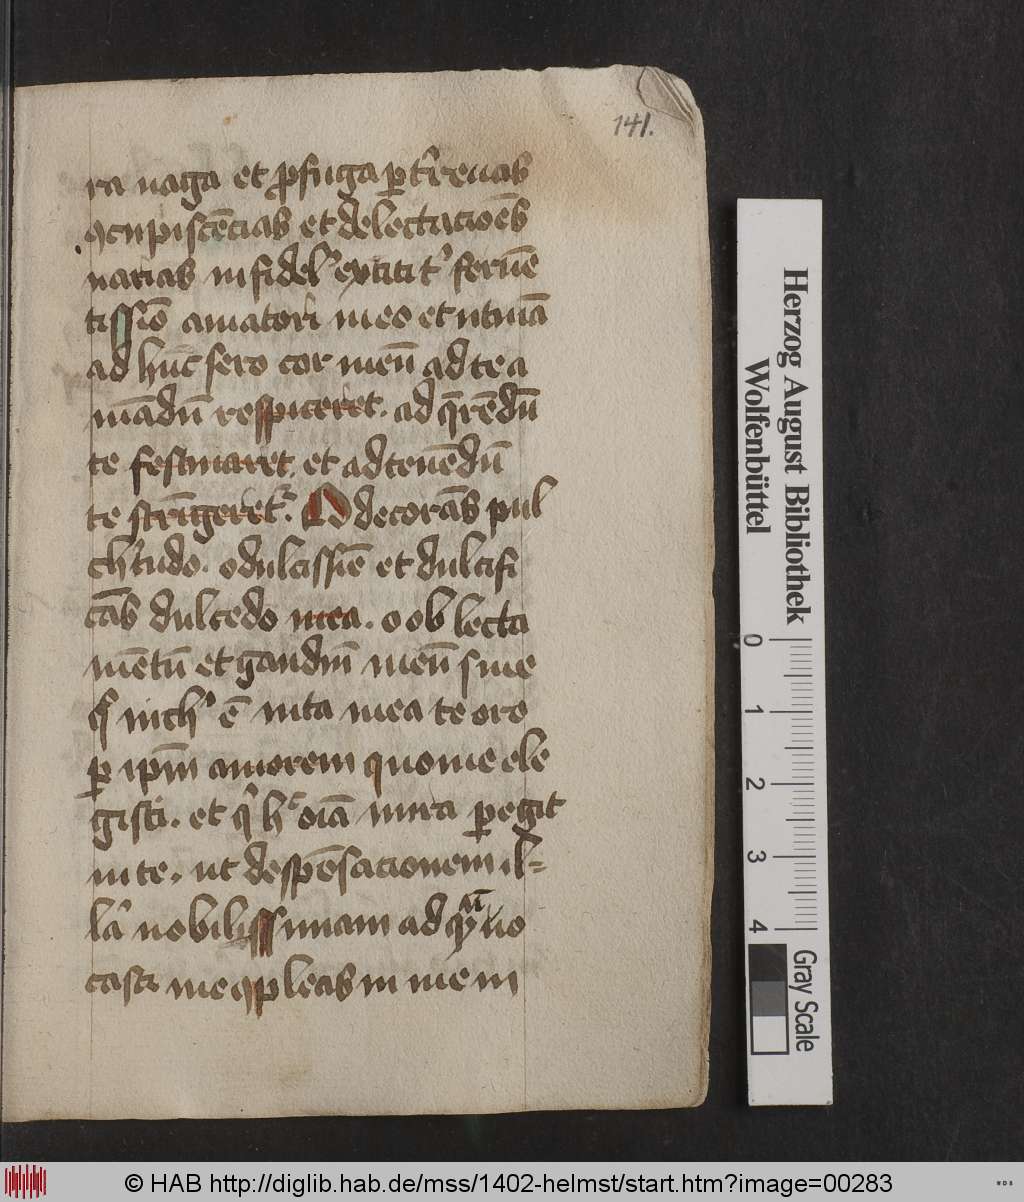 141.
ra uaga et ꝓfuga ꝑ t̉renas
ꝯcupiscēcias et delectacōēs
uarias infidel' extiti t' feruē
tissīo amatori meo et utinā
ad huc̄ sero cor meū ad te a
mādū respiceret. ad q̄rēdū
te festinaret et ad tenēdū
te strīngeret. O decorās pul
ch̉tudo. o dulcissīe et dulcifi
cās dulcedo mea. o oblecta
mētū et gaudiū meū sine
q̄ nich' ē uita mea te oro
ꝑ ipm̄ amorem quo me ele
gisti. et qͥ hͨ oīā mira ꝑegit
in te. ut despēsacionem il=
lā nobilissimam ad qͣ̄ uo
casti me ꝯpleas in me in
Herzog August Bibliothek
Wolfenbüttel
0 1 2 3 4
Gray Scale
© HAB http://diglib.hab.de/mss/1402-helmst/start.htm?image=00283